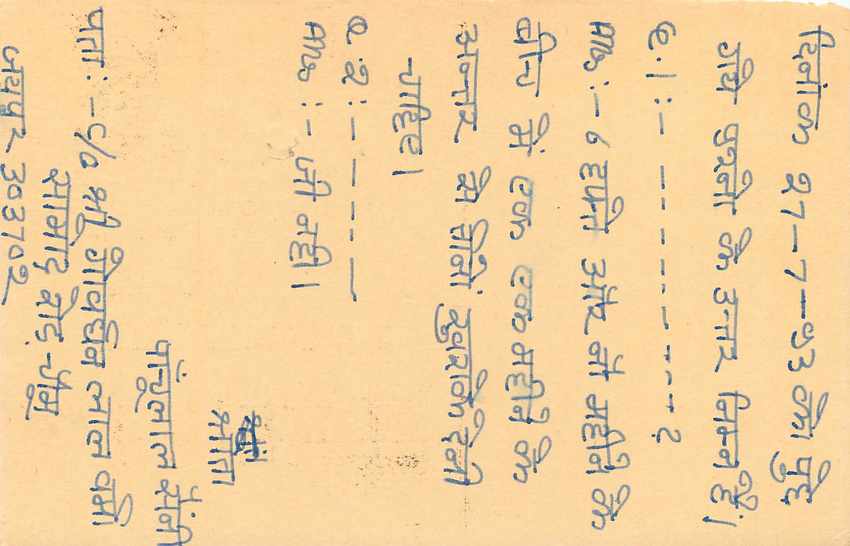 दिनांक 27-7-93 को पुछे
गये प्रश्नो के उत्तर निम्न हैं।
Q.1:- - - - - - - - - - ?
Ans:- 6 हफ्ते और नौ महीने के
बीच में एक एक महीने के
अन्तर से तीनों खुराकें देनी
चाहिए।
Q.2:- - - - -
Ans:- जी नहीं।
श्रोता
पांचुलाल सैनी
पता:- C/o श्री गोवर्धन लाल वर्मा
सामोद रोड़ चौमू
जयपुर 303702